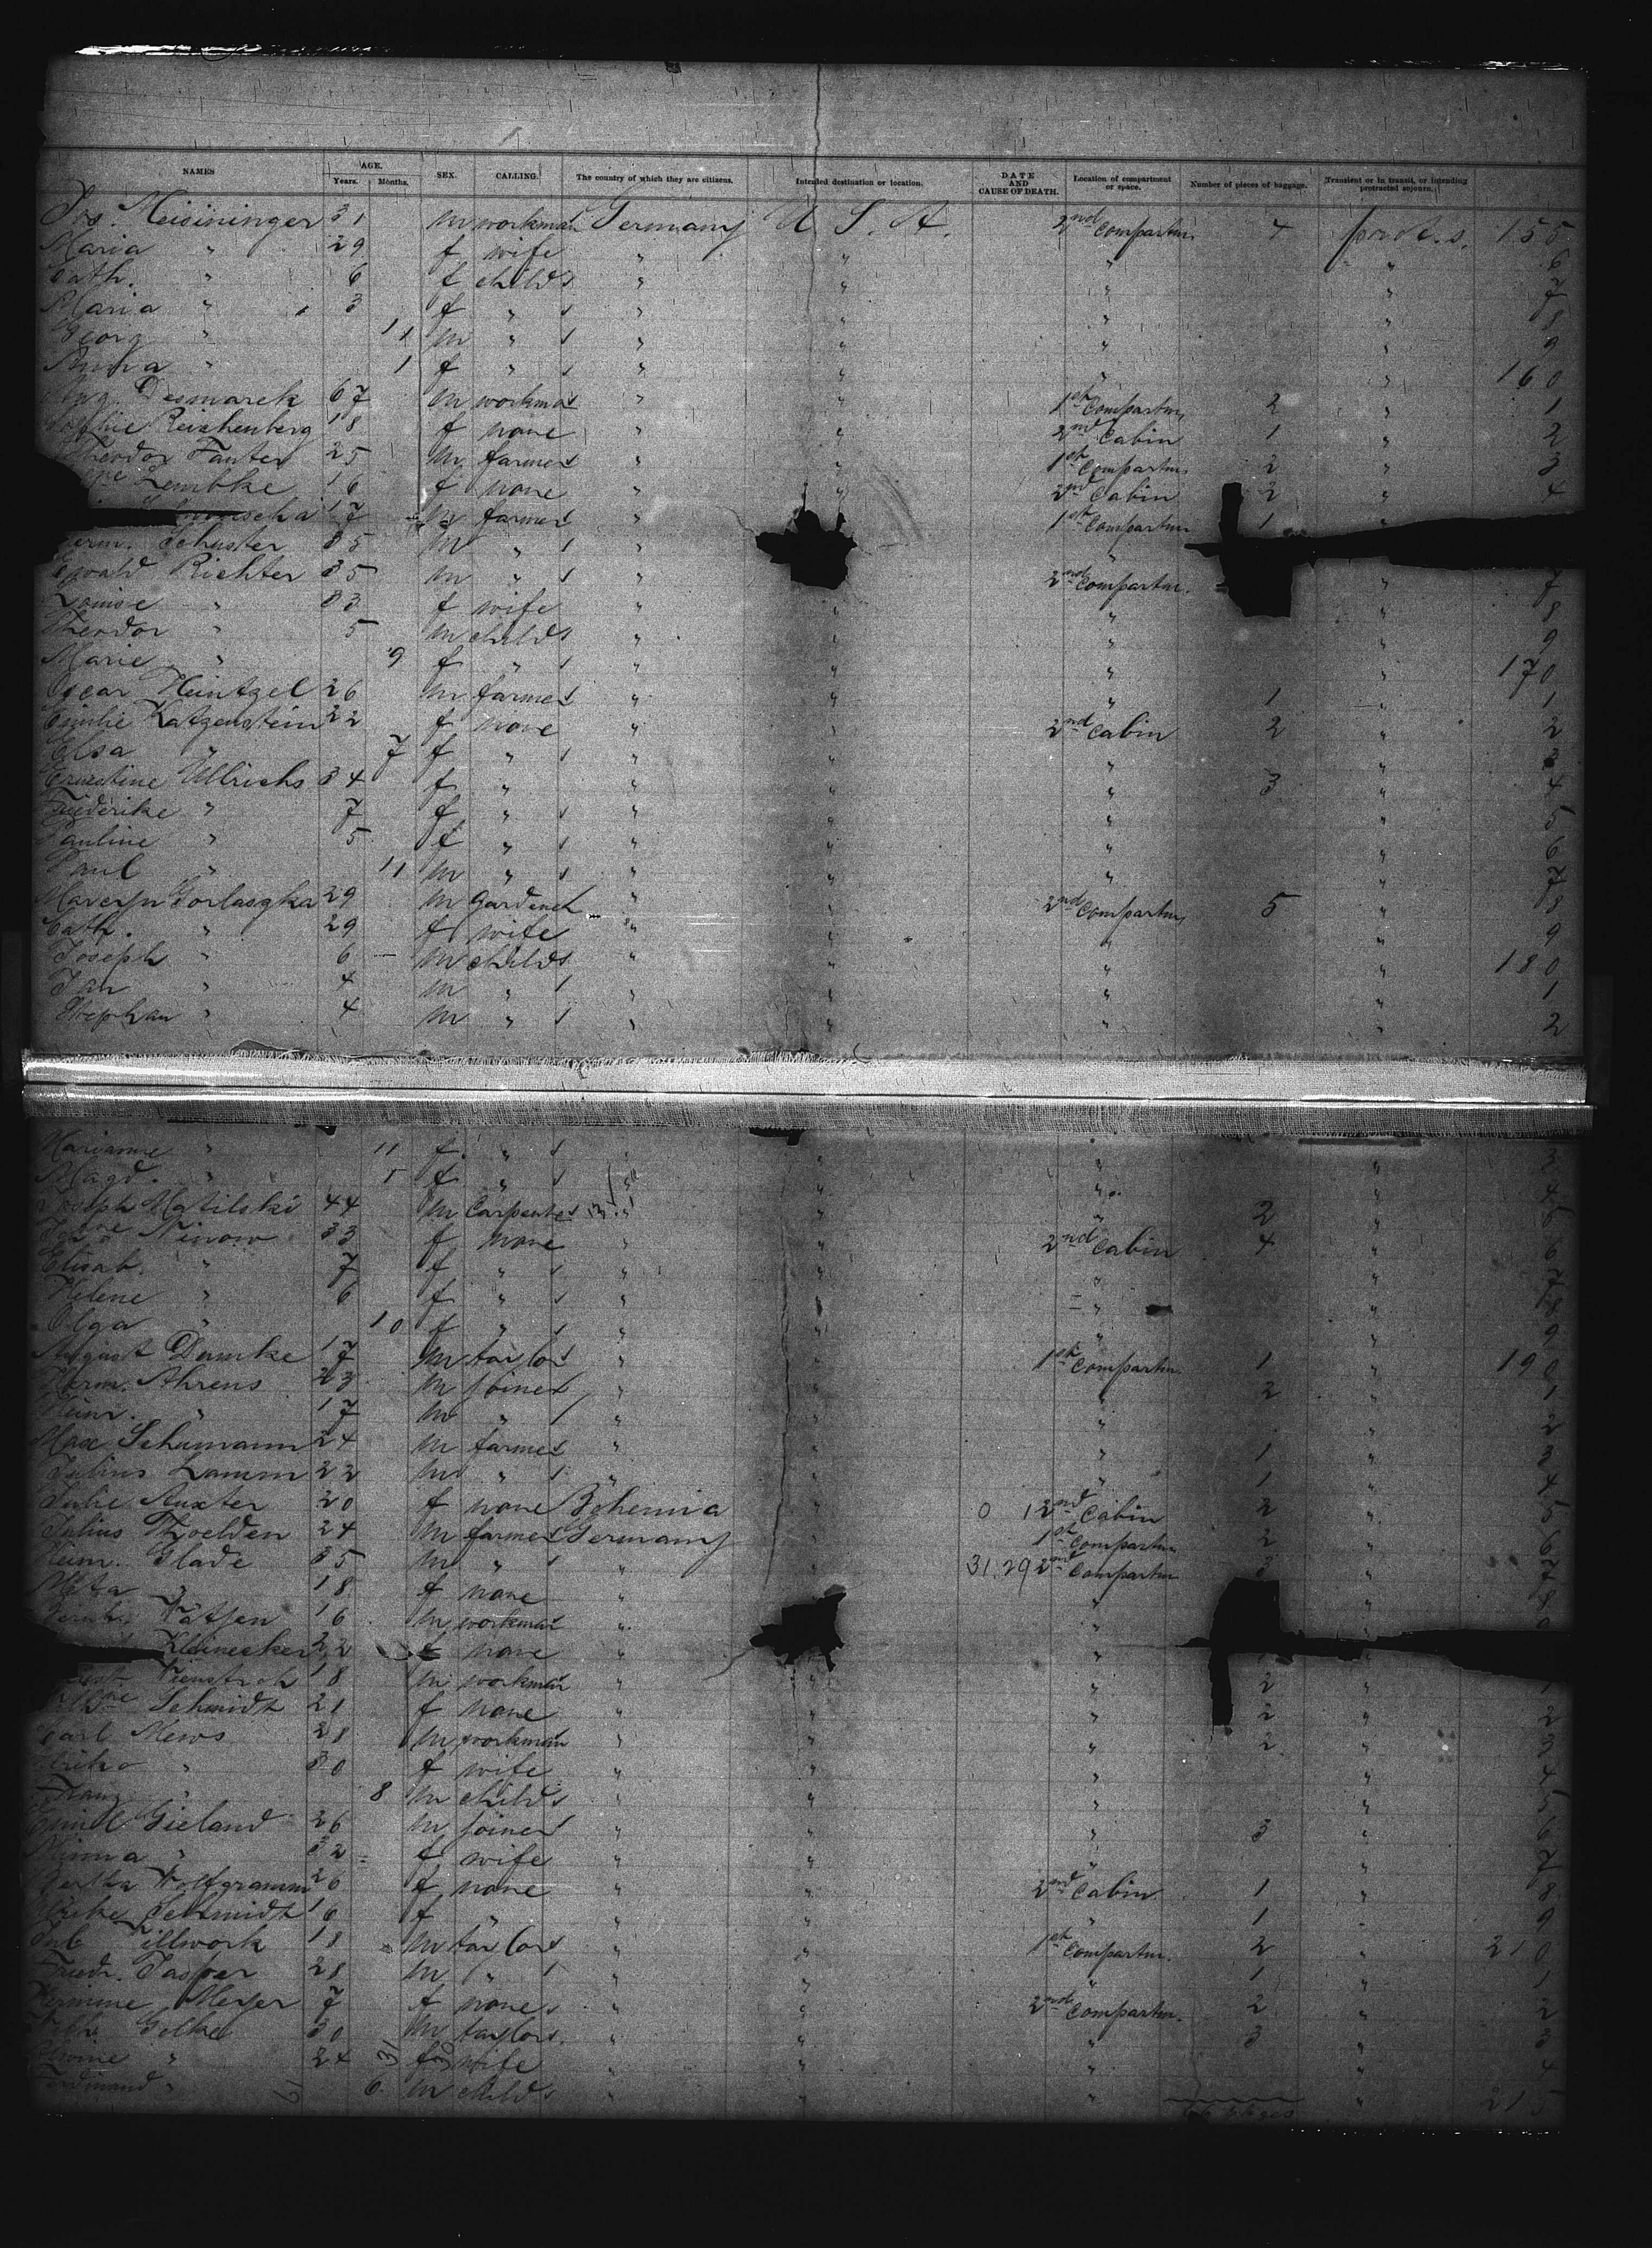 NAMES AGE. Years. Months. SEX. CALLING. The country of which they are citizens. Intended destination or location. DATE AND CAUSE OF DEATH. Location of compartment or space. Number of pieces of baggage. Transient or in transit, or intending protracted sojourn.
Jos. Meisininger 31 m workman Germany U. S. A. 2nd Compartm. 4 prot. s. 155
Maria " 29 f wife " " " " 6
Cath. " 6 f childs " " " " 7
Maria " 3 f " " " " " 8
Georg " 11 m " " " " " 9
Anna " 1 f " " " " " 160
Desmarek 67 m workman " " 1st Compartm. 2 " 1
Sophie Reichenberg 18 f none " " 2nd Cabin 1 " 2
Theodor Fanter 25 m farmer " " 1st Compartm. 2 " 3
Lembke 16 f none " " 2nd Cabin 2 " 4
17 m farmer " 1st Compartm. 1 "
Herm. Schuster 35 m " " "
Ewald Richter 35 m " " 2nd Compartm. " 7
Louise " 33 f wife " " " " 8
Theodor " 5 m childs " " " " 9
Marie " 9 f " " " " " 170
Oscar Heintzel 26 m farmer " " " 1 " 1
Emilie Katzenstein 22 f none " " 2nd Cabin 2 " 2
Elsa " 7 f " " " " " 3
Ernestine Ullrichs 34 f " " " " 3 " 4
Friederike " 7 f " " " " " 5
Pauline " 5 f " " " " " 6
Paul " 11 m " " " " " 7
Gorlaszka 29 m Gardener " " 2nd Compartm. 5 " 8
Cath. " 29 f wife " " " " 9
Joseph " 6 m childs " " " " 180
Jan " 4 m " " " " " 1
Stephan " 4 m " " " " " 2
Marianne " 11 f " " " " " 3
Magd. " f " " " " 4
Matilski 44 m Carpenter " " " 2 5
Ninow 33 f none " " 2nd Cabin 4 " 6
Elisab. " 7 f " " " " " 7
Helene " 6 f " " " " " 8
Olga " 10 f " " " " " 9
August Damke 17 m taylor " " 1st Compartm. 1 " 190
Herm. Ahrens 23 m joiner " " " 2 " 1
Heinr. " 17 m " " " " " 2
Max Schumann 24 m farmer " " " 1 " 3
Julius Lamm 22 m " " " " 1 " 4
Julie Auxter 20 f none Bohemia " 0 1 2nd Cabin 2 " 5
Julius Thoelden 24 m farmer Germany " 1st Compartm 2 " 6
Heinr. Glade 35 m " " " 31.29 2nd Compartm 3 " 7
Meta " 18 f none " " " 8
Wätjen 16 m workman " "
Kleinecker 22 f none " "
18 m workman " " " 2 1
Schmidt 21 f none " " " 2 " 2
Carl Mews 28 m workman " " " 2 " 3
" 30 f wife " " " " 4
Franz " 8 m childs " " " " 5
Emil Gieland 26 m joiner " " " 3 " 6
Minna " 32 f wife " " " " 7
Bertha Wolfgramm 26 f none " " 2nd Cabin 1 " 8
Schmidt 16 f " " " " 1 " 9
Tillwork 18 m taylor " " 1st Compartm. 2 " 210
Friedr. Jasper 28 m " " " " 1 " 1
Hermine Meyer 7 f none " " 2nd Compartm. 2 " 2
Golke 30 m taylor " " " 3 " 3
" 24 f wife " " " " 4
Ferdinand " 6 m childs " " " " 215